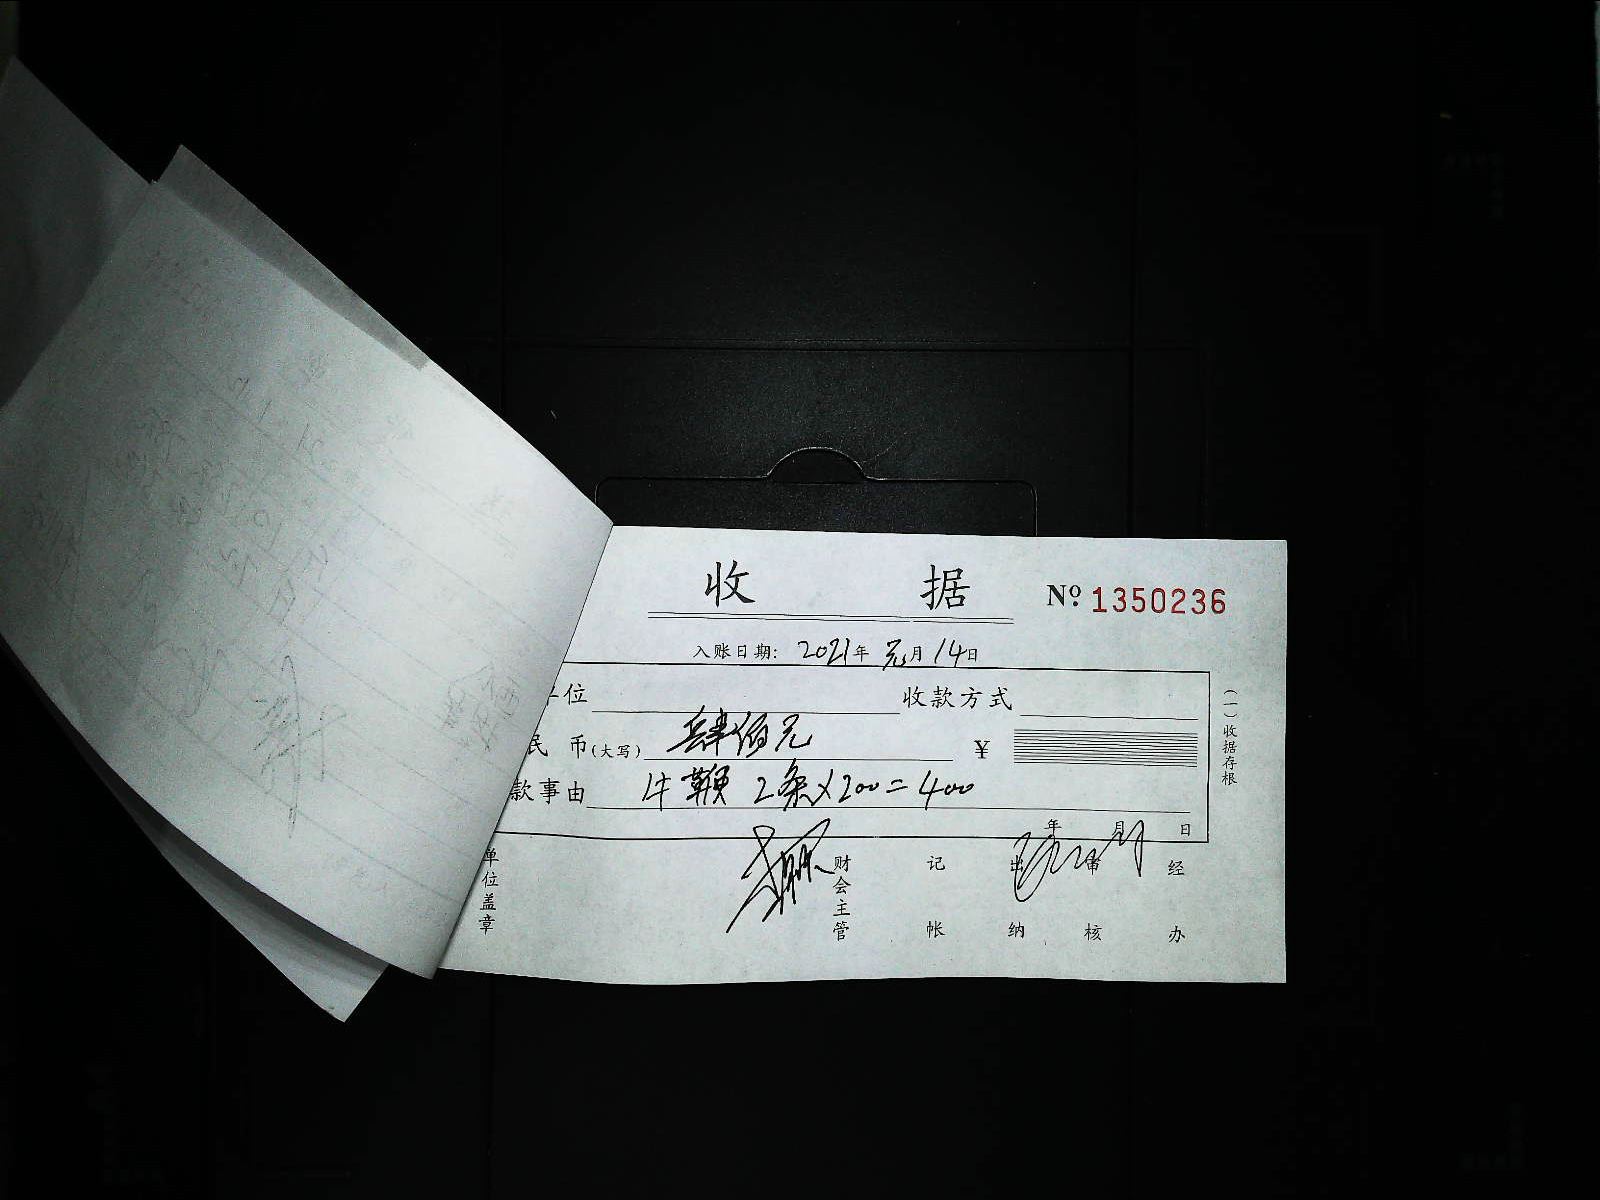 收 据 Nº 1350236
入账日期: 2021年 元月 14日
位 收款方式
民 币(大写) 肆佰元 ¥
款事由 牛鞭 2条×200=400
年 月 日
单位盖章 财会主管 记帐 出纳 审核 经办
(一)收据存根